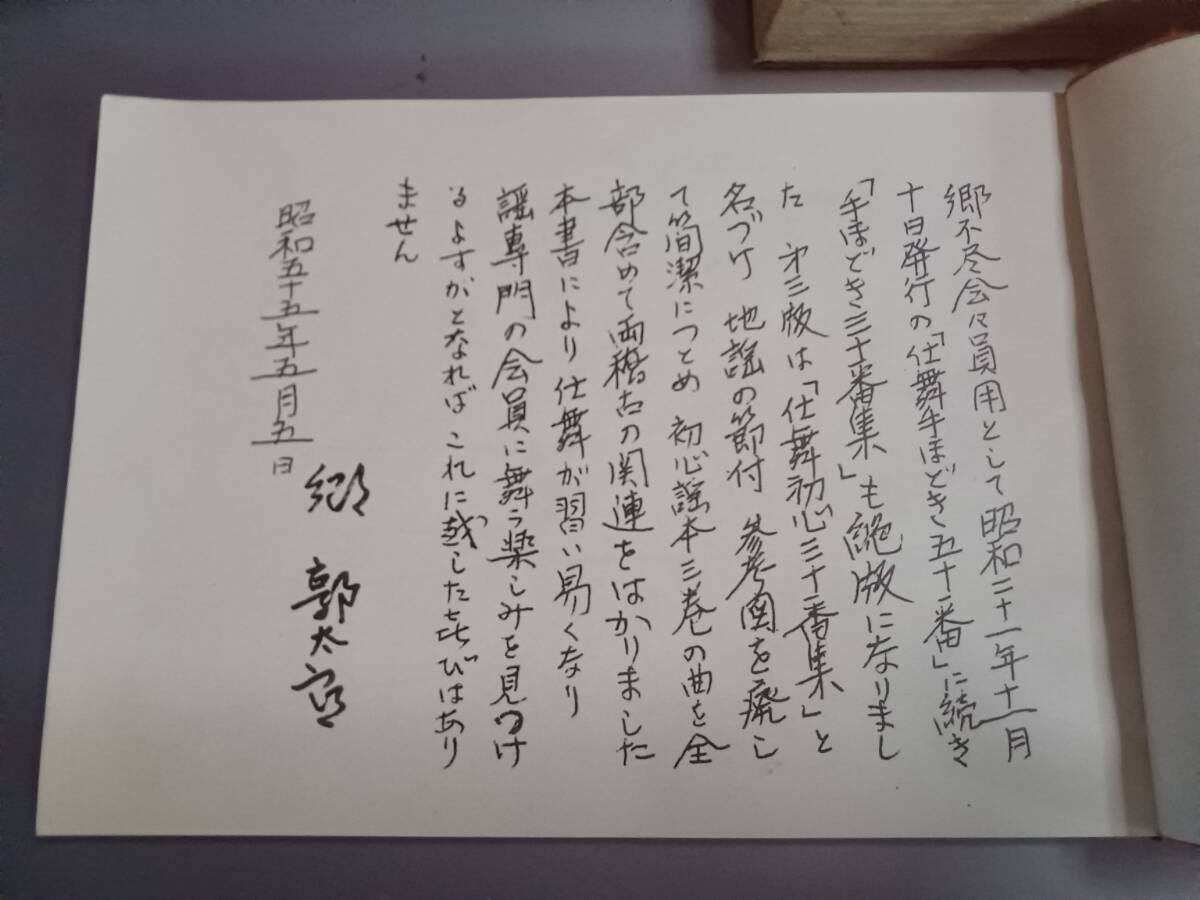 郷不尽会々員用として昭和二十一年十一月
十日発行の「仕舞手ほどき五十番」に続き
「手ほどき三十番集」も絶版になりまし
た 才三版は「仕舞初心三十番集」と
名づけ 地謡の節付 参考図を廃し
て簡潔につとめ 初心謡本三巻の曲を全
部含めて両稽古の関連をはかりました
本書により仕舞が習い易くなり
謡専門の会員に舞う楽しみを見つけ
るよすがとなれば これに越した喜びはあり
ません
昭和五十五年五月五日
郷 郭太郎